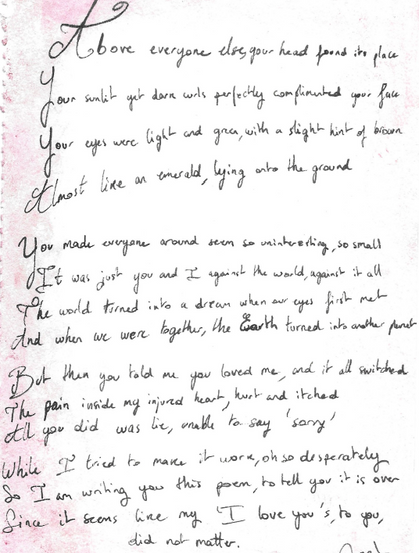 Above everyone else, your head found its place
Your sunlit yet dark curls perfectly complimented your face
Your eyes were light and green, with a slight hint of brown
Almost like an emerald, lying onto the ground
You made everyone around seem so uninteresting, so small
It was just you and I against the world, against it all
The world turned into a dream when our eyes first met
And when we were together, the Earth turned into another planet
But then you told me you loved me, and it all switched
The pain inside my injured heart, hurt and itched
All you did was lie, unable to say 'sorry'
While I tried to make it work, oh so desperately
So I am writing you this poem, to tell you it is over
Since it seems like my 'I love you's, to you,
did not matter.